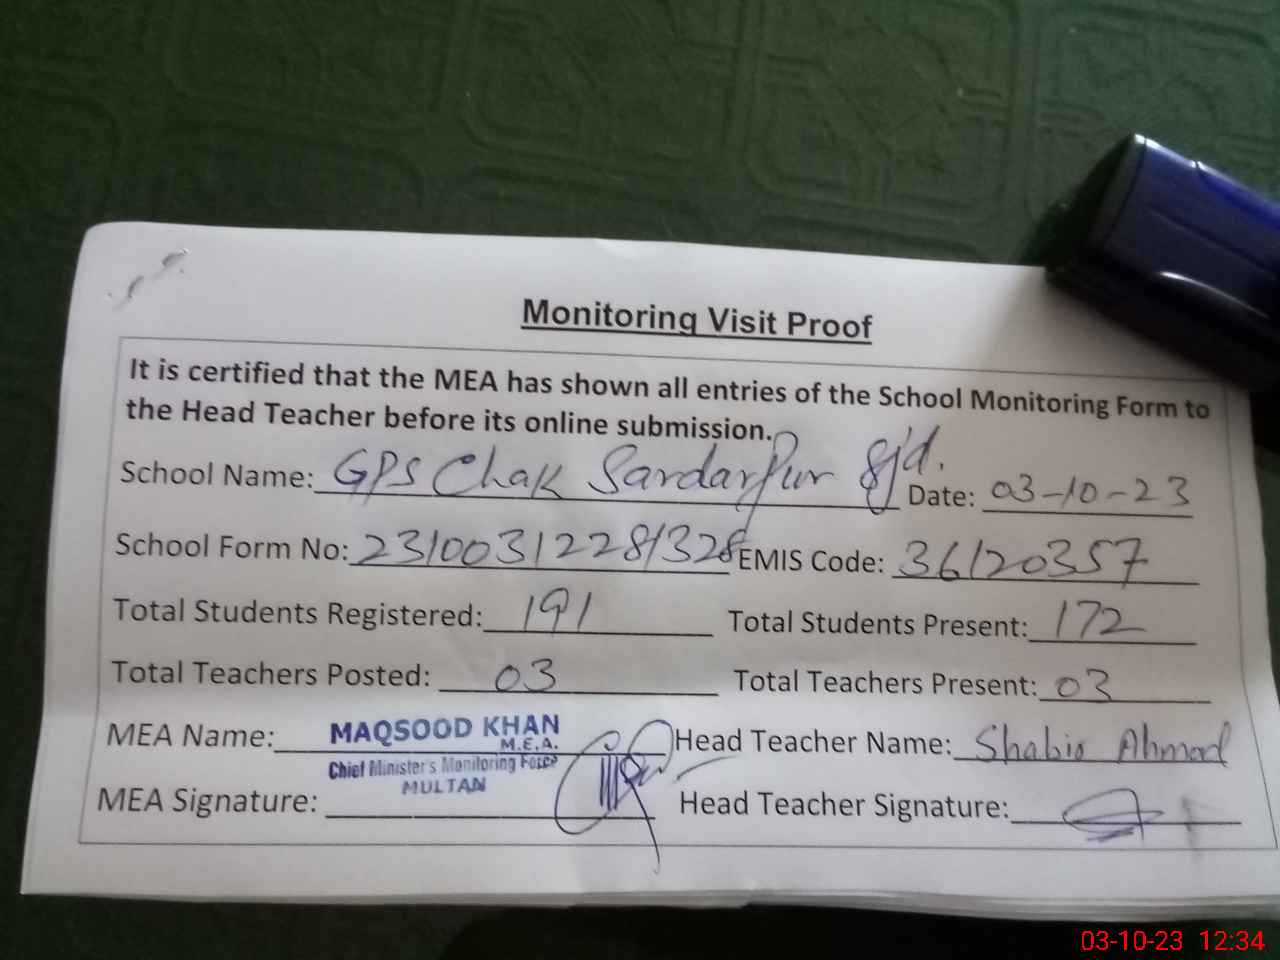 Monitoring Visit Proof
It is certified that the MEA has shown all entries of the School Monitoring Form to
the Head Teacher before its online submission.
School Name: GPS Chak Sardarpur Date: 03-10-23
School Form No: 231003122281328 EMIS Code: 36120357
Total Students Registered: 191 Total Students Present: 172
Total Teachers Posted: 03 Total Teachers Present: 03
MEA Name: MAQSOOD KHAN Head Teacher Name: Shabir Ahmad
M.E.A.
Chief Minister's Monitoring Force
MULTAN
MEA Signature: Head Teacher Signature:
03-10-23 12:34